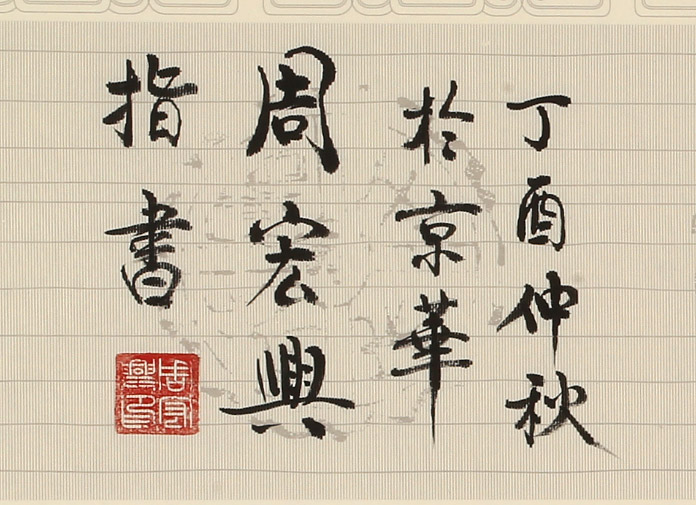 丁酉仲秋
於京華
周宏興
指書
周宏興印